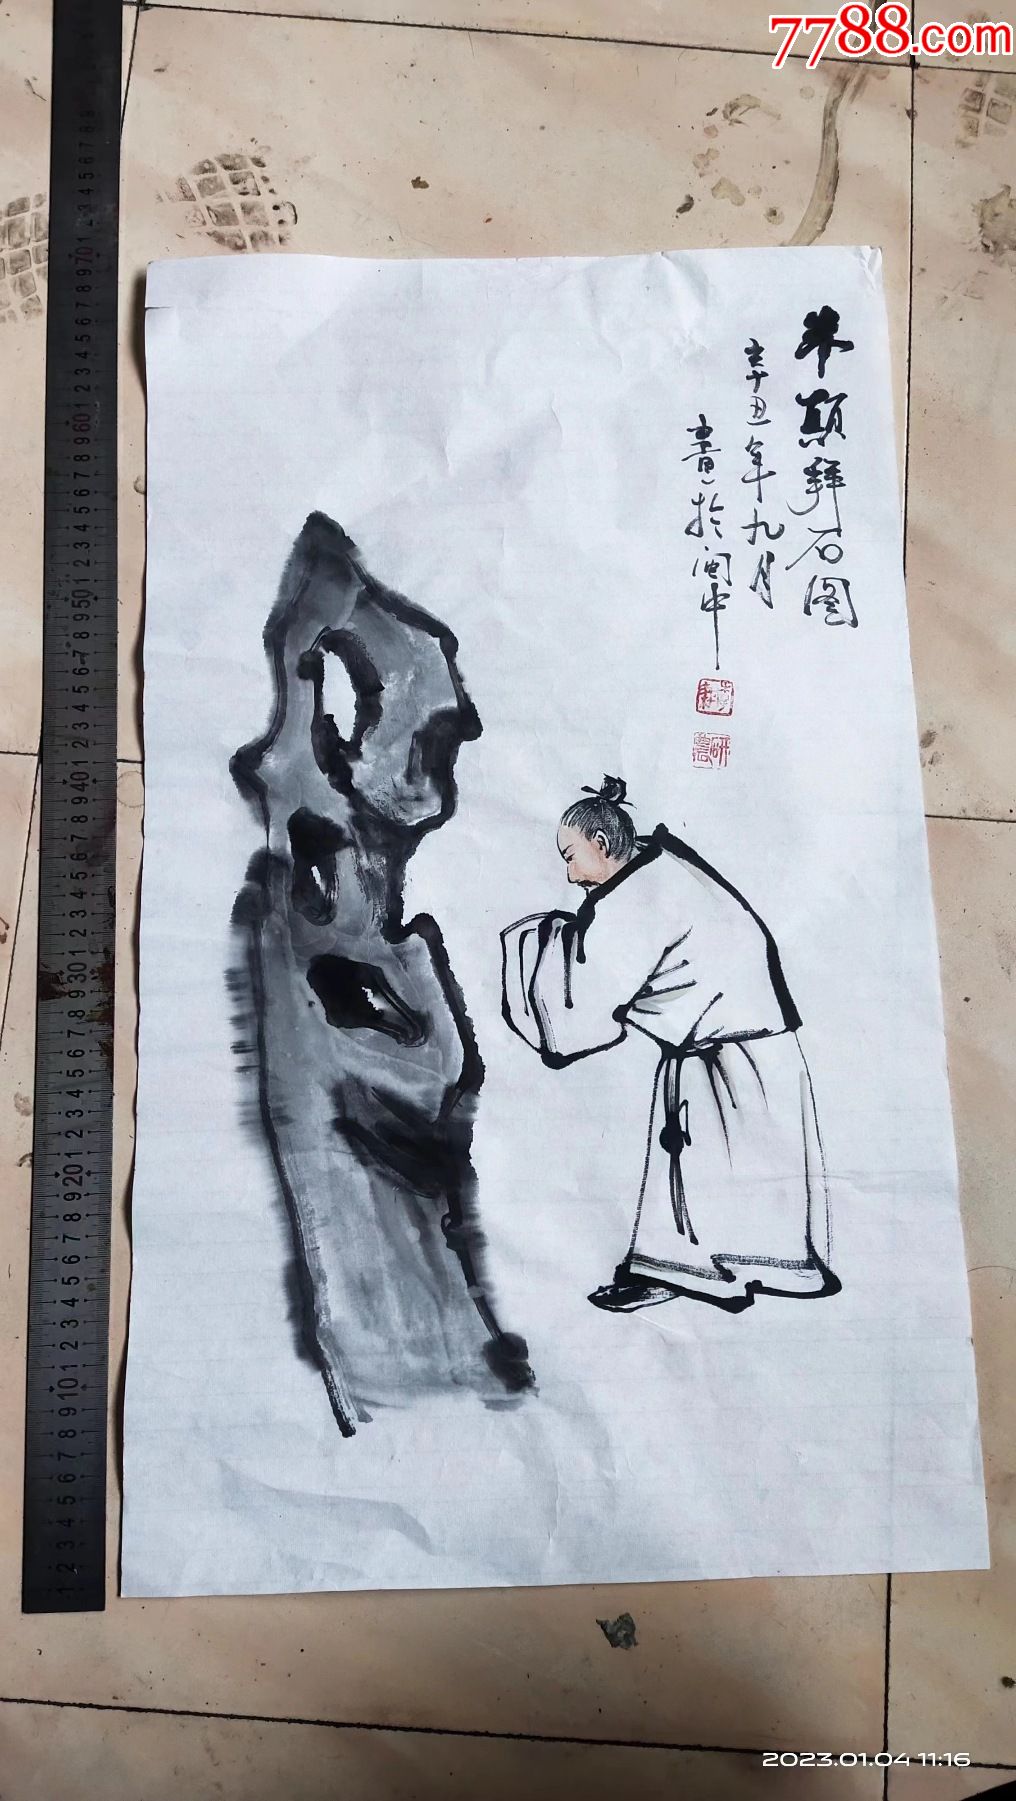 7788.com
米颠拜石图
辛丑年九月
書於闽中
2023.01.04 11:16